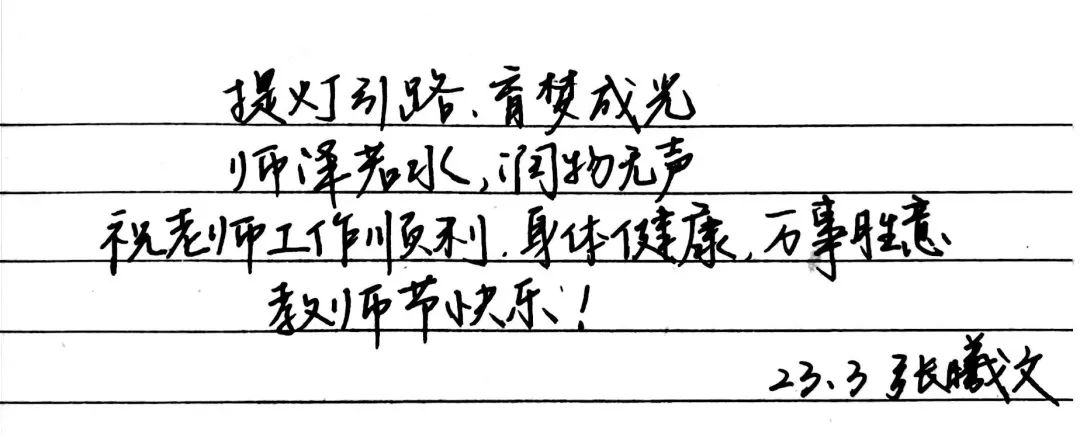 提灯引路、育梦成光
师泽若水,润物无声
祝老师工作顺利,身体健康,万事胜意
教师节快乐!
23.3 张曦文